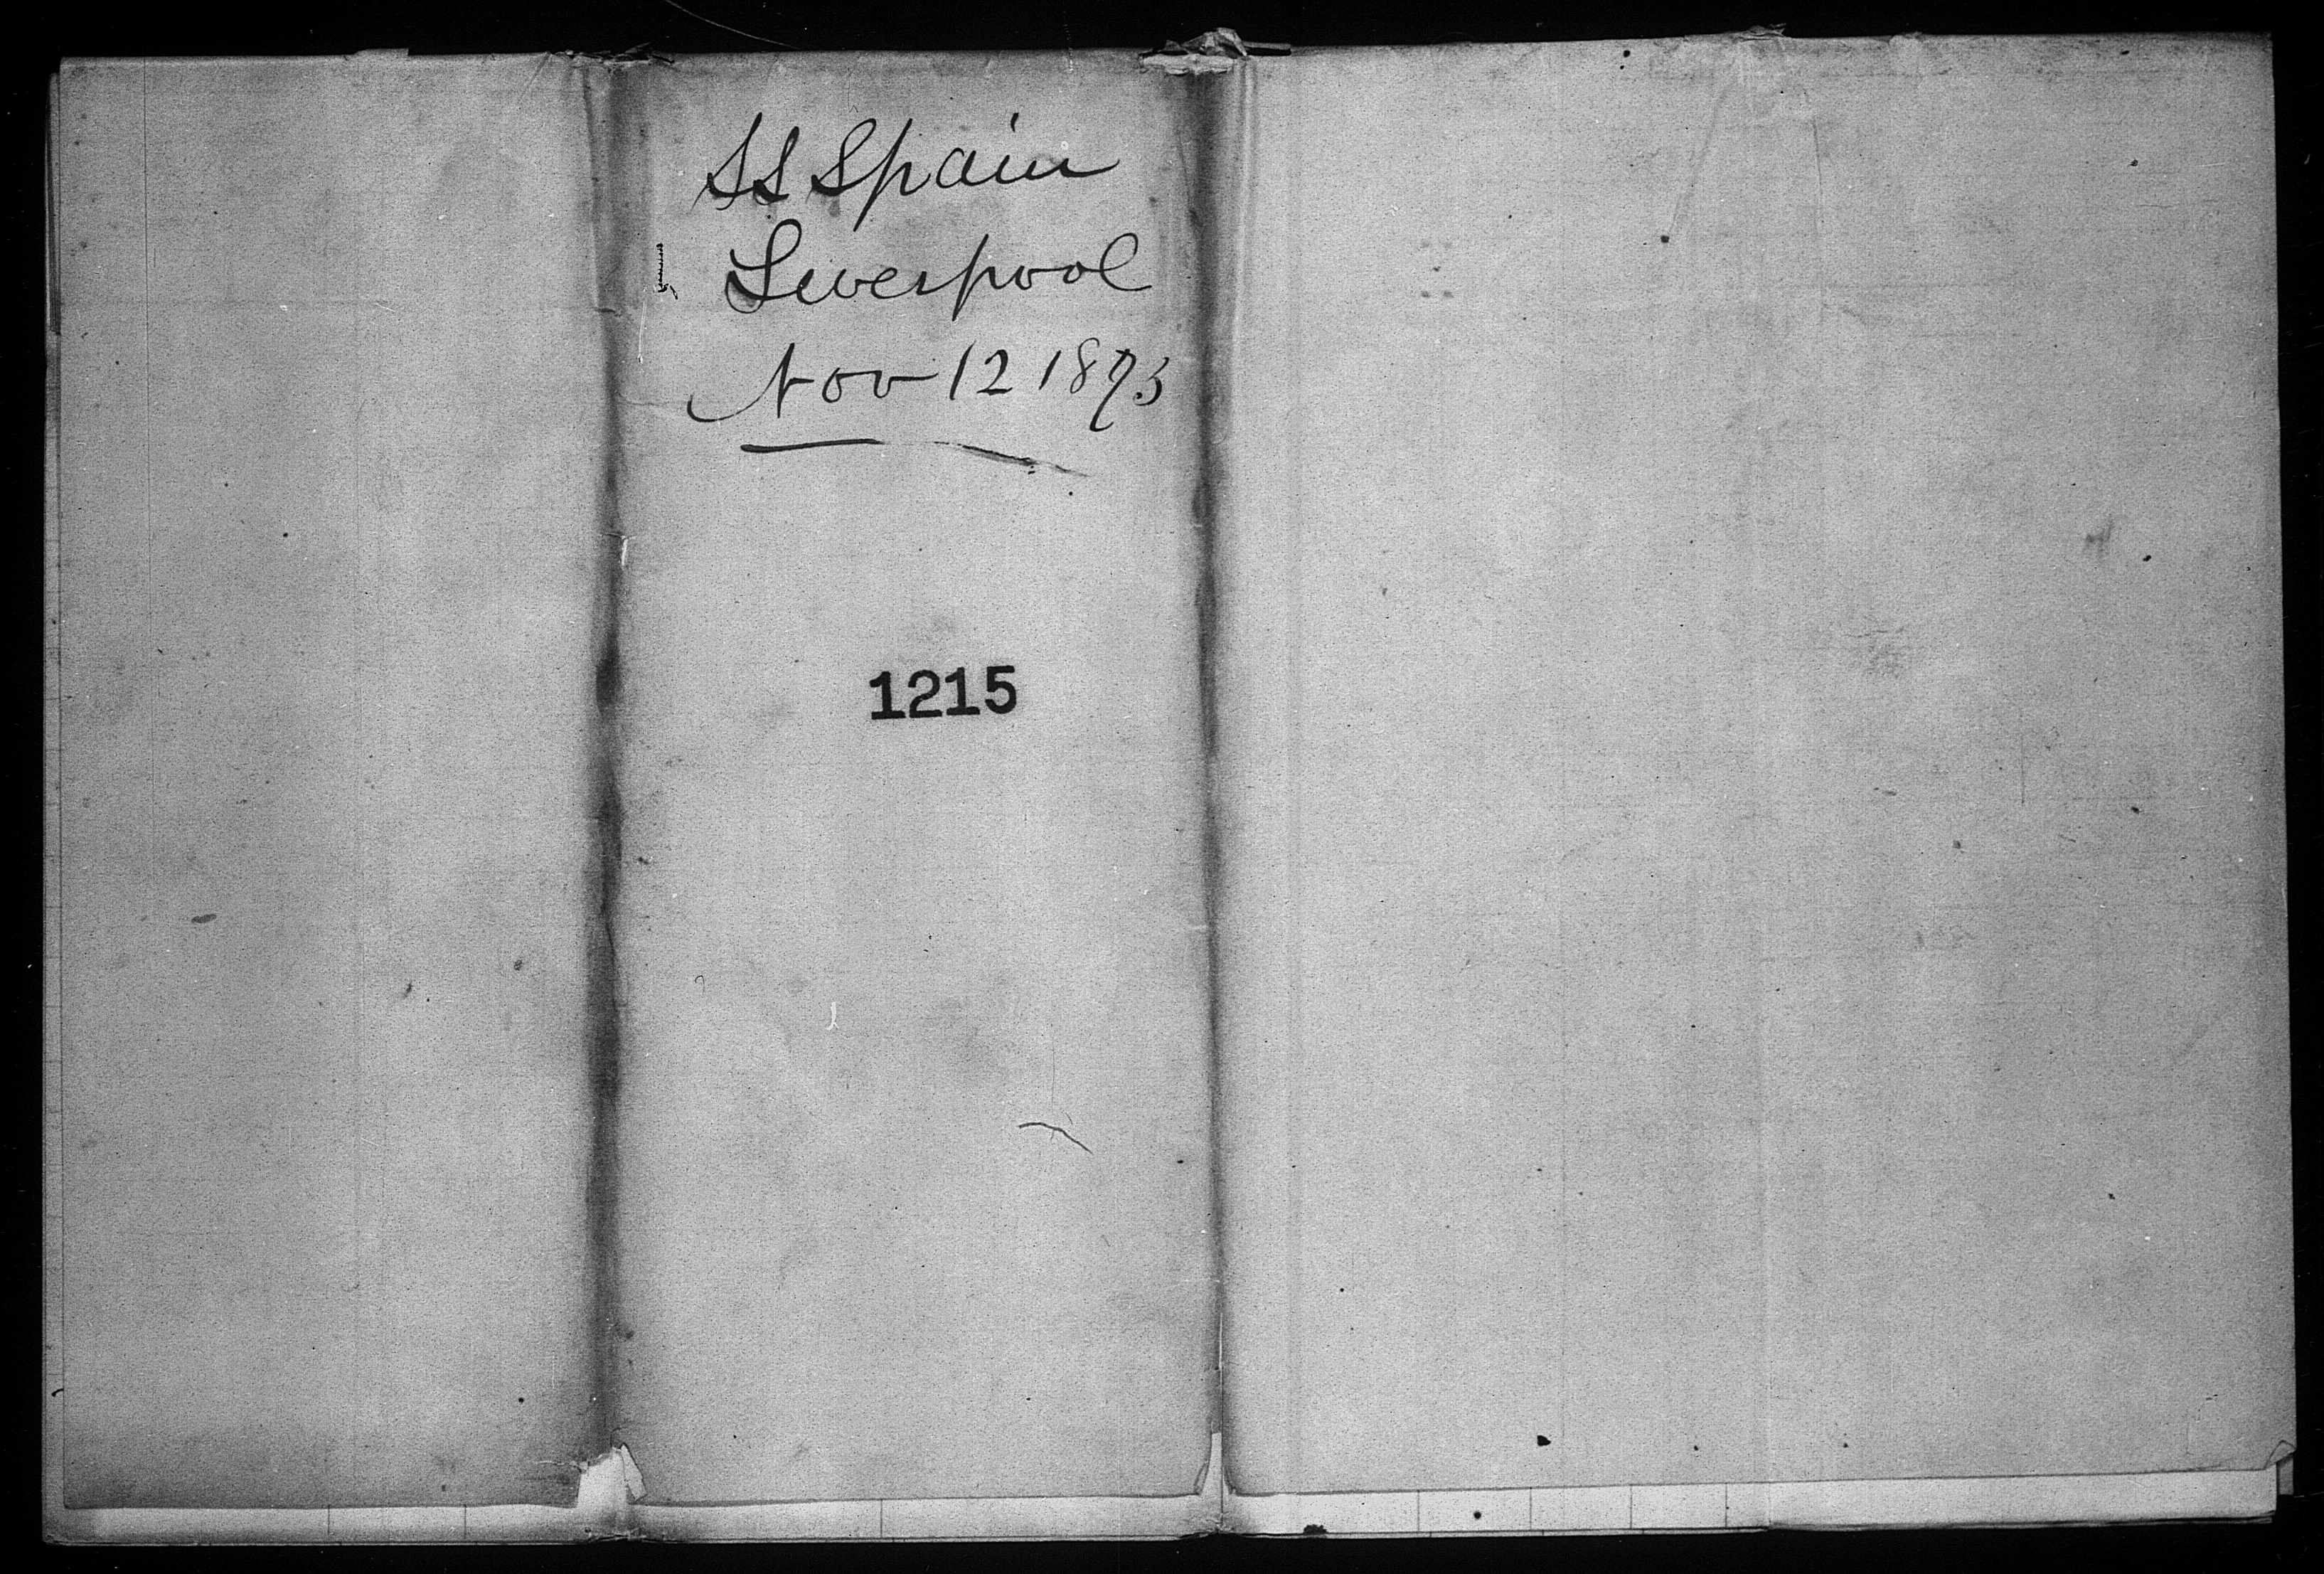 SS Spain
Liverpool
Nov 12 1873
1215